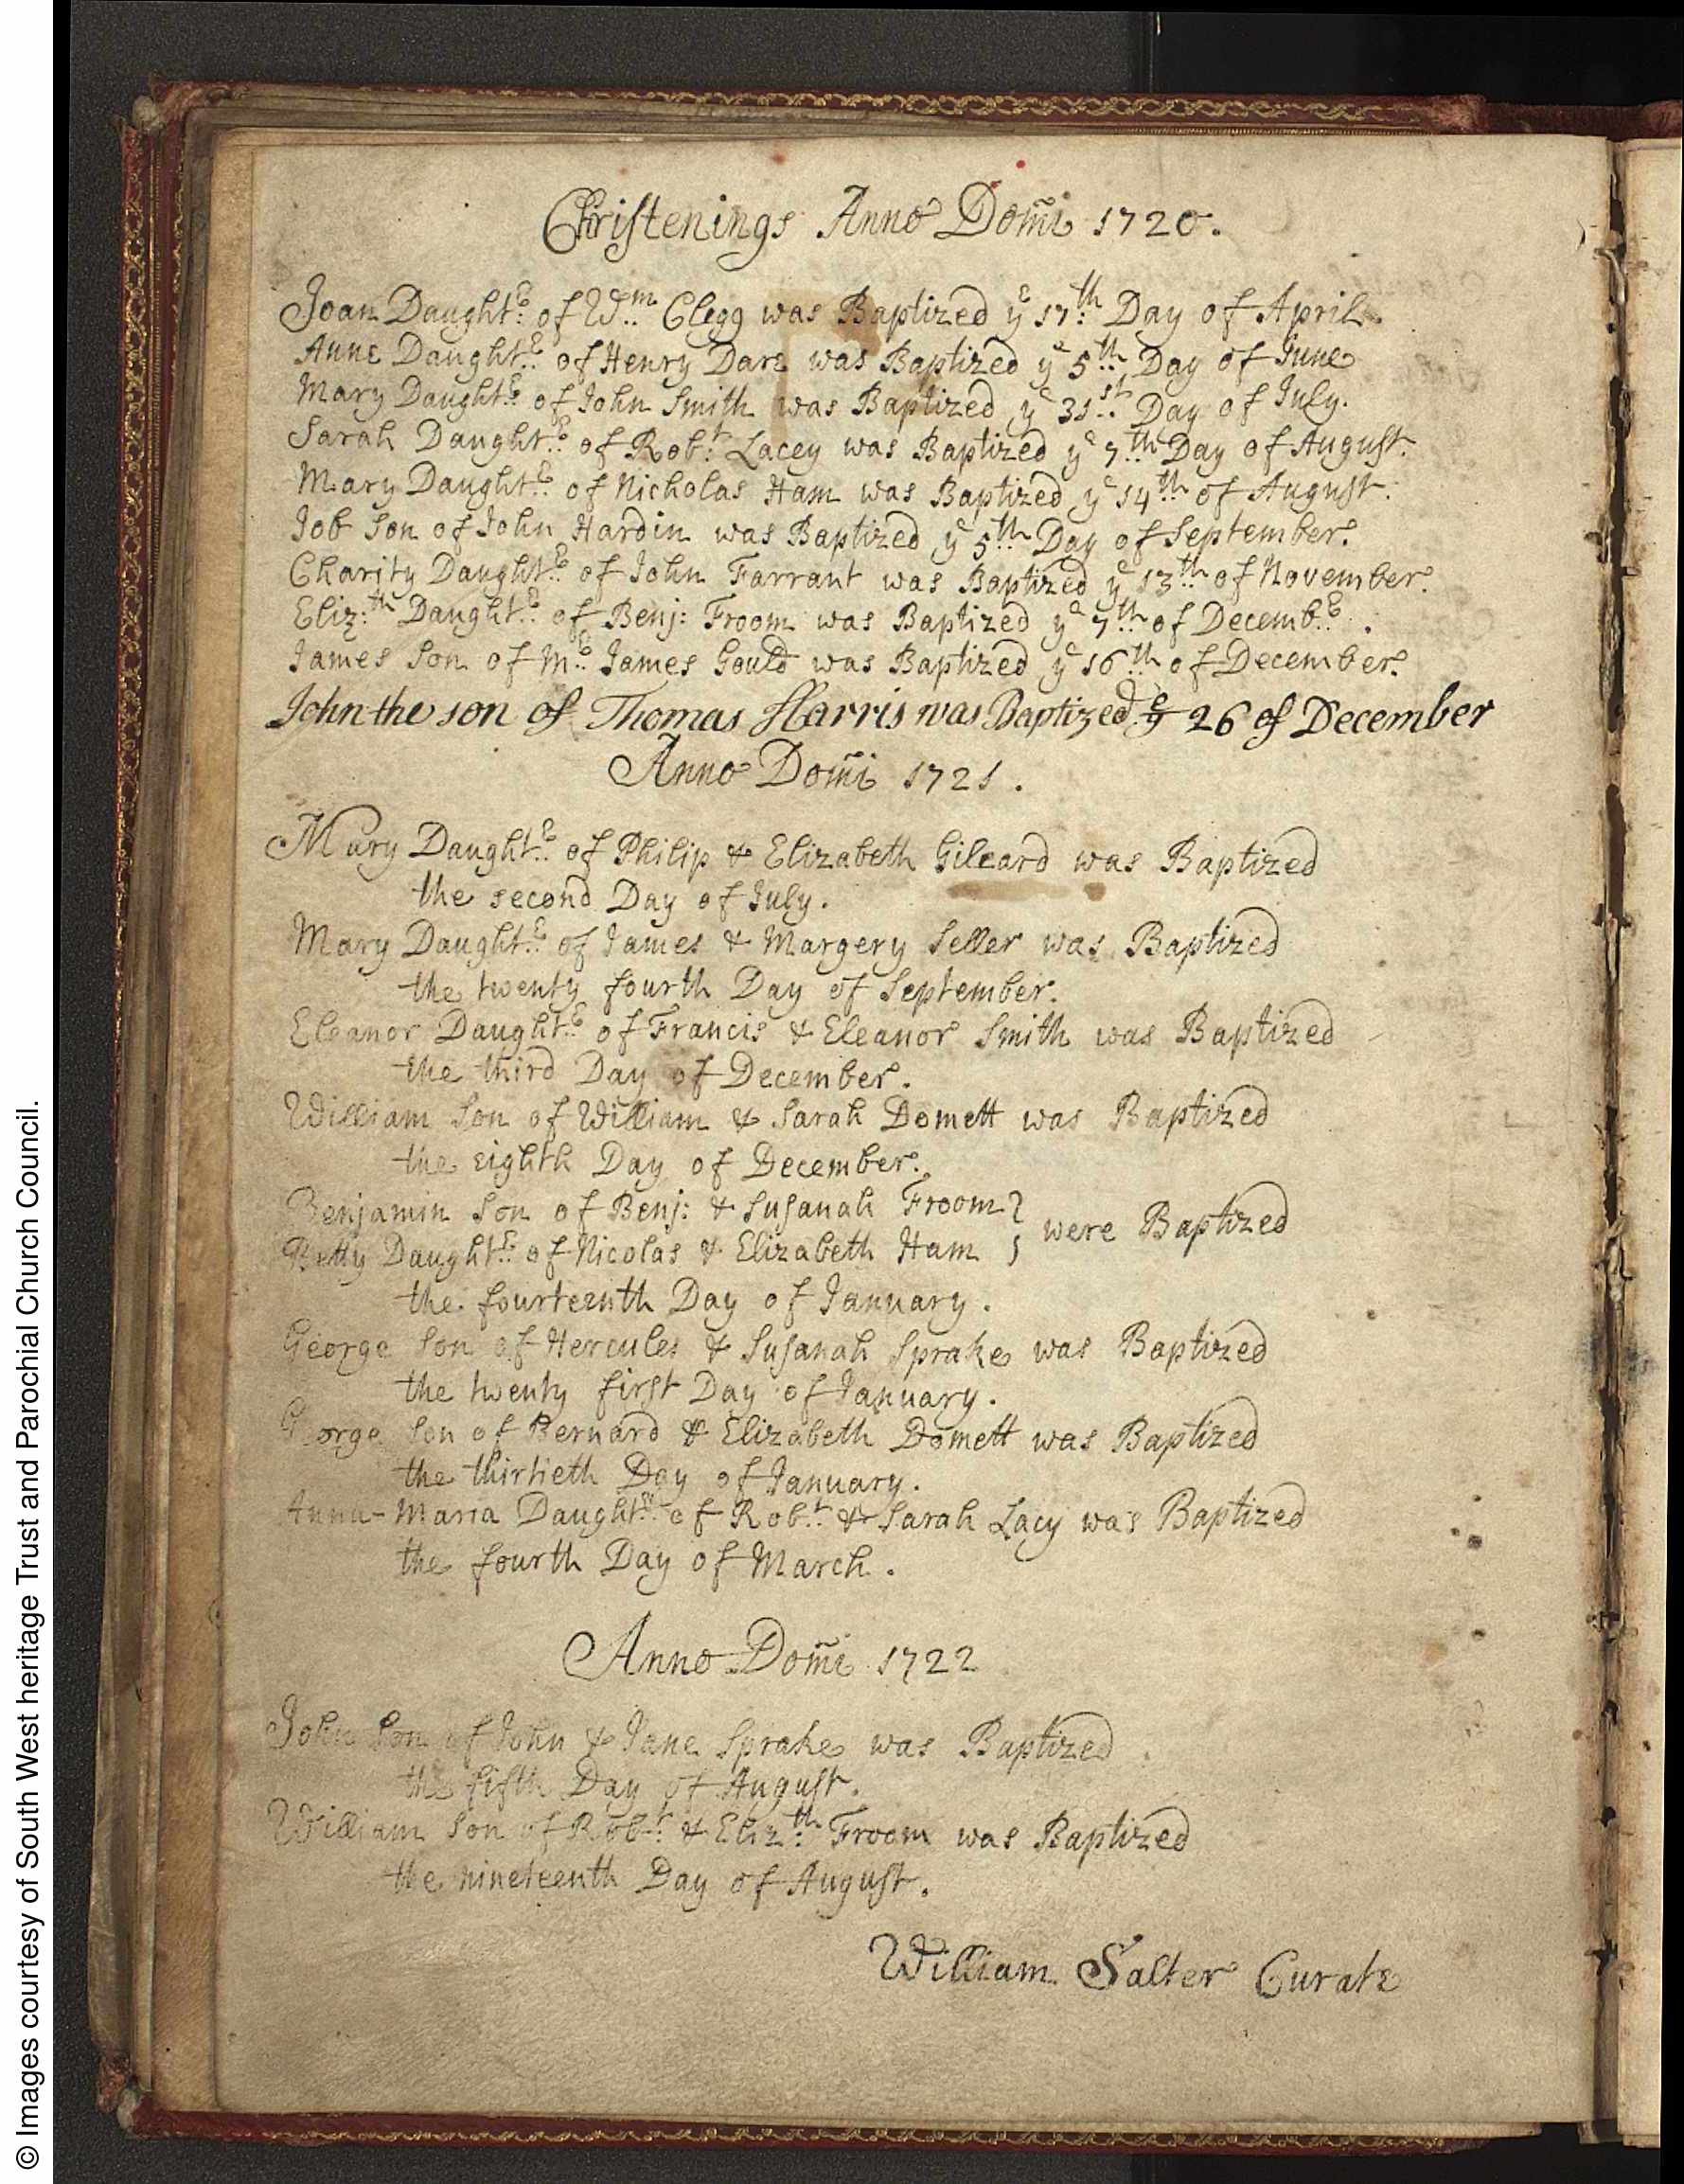 Christenings Anno Domi 1720.
Joan Daughtr. of Wm. Clegg was Baptized ye 17th Day of April.
Anne Daughtr. of Henry Dare was Baptized ye 5th Day of June
Mary Daughtr. of John Smith was Baptized ye 31st Day of July.
Sarah Daughtr. of Robt: Lacey was Baptized ye 7th Day of August.
Mary Daughtr. of Nicholas Ham was Baptized ye 14th of August.
Job Son of John Hardin was Baptized ye 5th Day of September.
Charity Daughtr. of John Farrant was Baptized ye 13th of November.
Eliz:th Daughtr. of Benj: Froom was Baptized ye 7th of Decembr.
James Son of Mr. James Gould was Baptized ye 16th of December.
John the son of Thomas Harris was Baptized ye 26 of December
Anno Domi 1721.
Mary Daughtr. of Philip & Elizabeth Gileard was Baptized
the second Day of July.
Mary Daughtr. of James & Margery Seller was Baptized
the twenty fourth Day of September.
Eleanor Daughtr. of Francis & Eleanor Smith was Baptized
the third Day of December.
William Son of William & Sarah Domett was Baptized
the eighth Day of December.
Benjamin Son of Benj: & Susanah Froom } were Baptized
Betty Daughtr. of Nicolas & Elizabeth Ham
the fourteenth Day of January.
George Son of Hercules & Susanah Sprake was Baptized
the twenty first Day of January.
George Son of Bernard & Elizabeth Domett was Baptized
the thirtieth Day of January.
Anna-Maria Daughtr. of Robt. & Sarah Lacy was Baptized
the fourth Day of March.
Anno Domi 1722
John Son of John & Jane Sprake was Baptized
the fifth Day of August.
William Son of Robt: & Eliz:th Froom was Baptized
the nineteenth Day of August.
William Salter Curate
© Images courtesy of South West heritage Trust and Parochial Church Council.